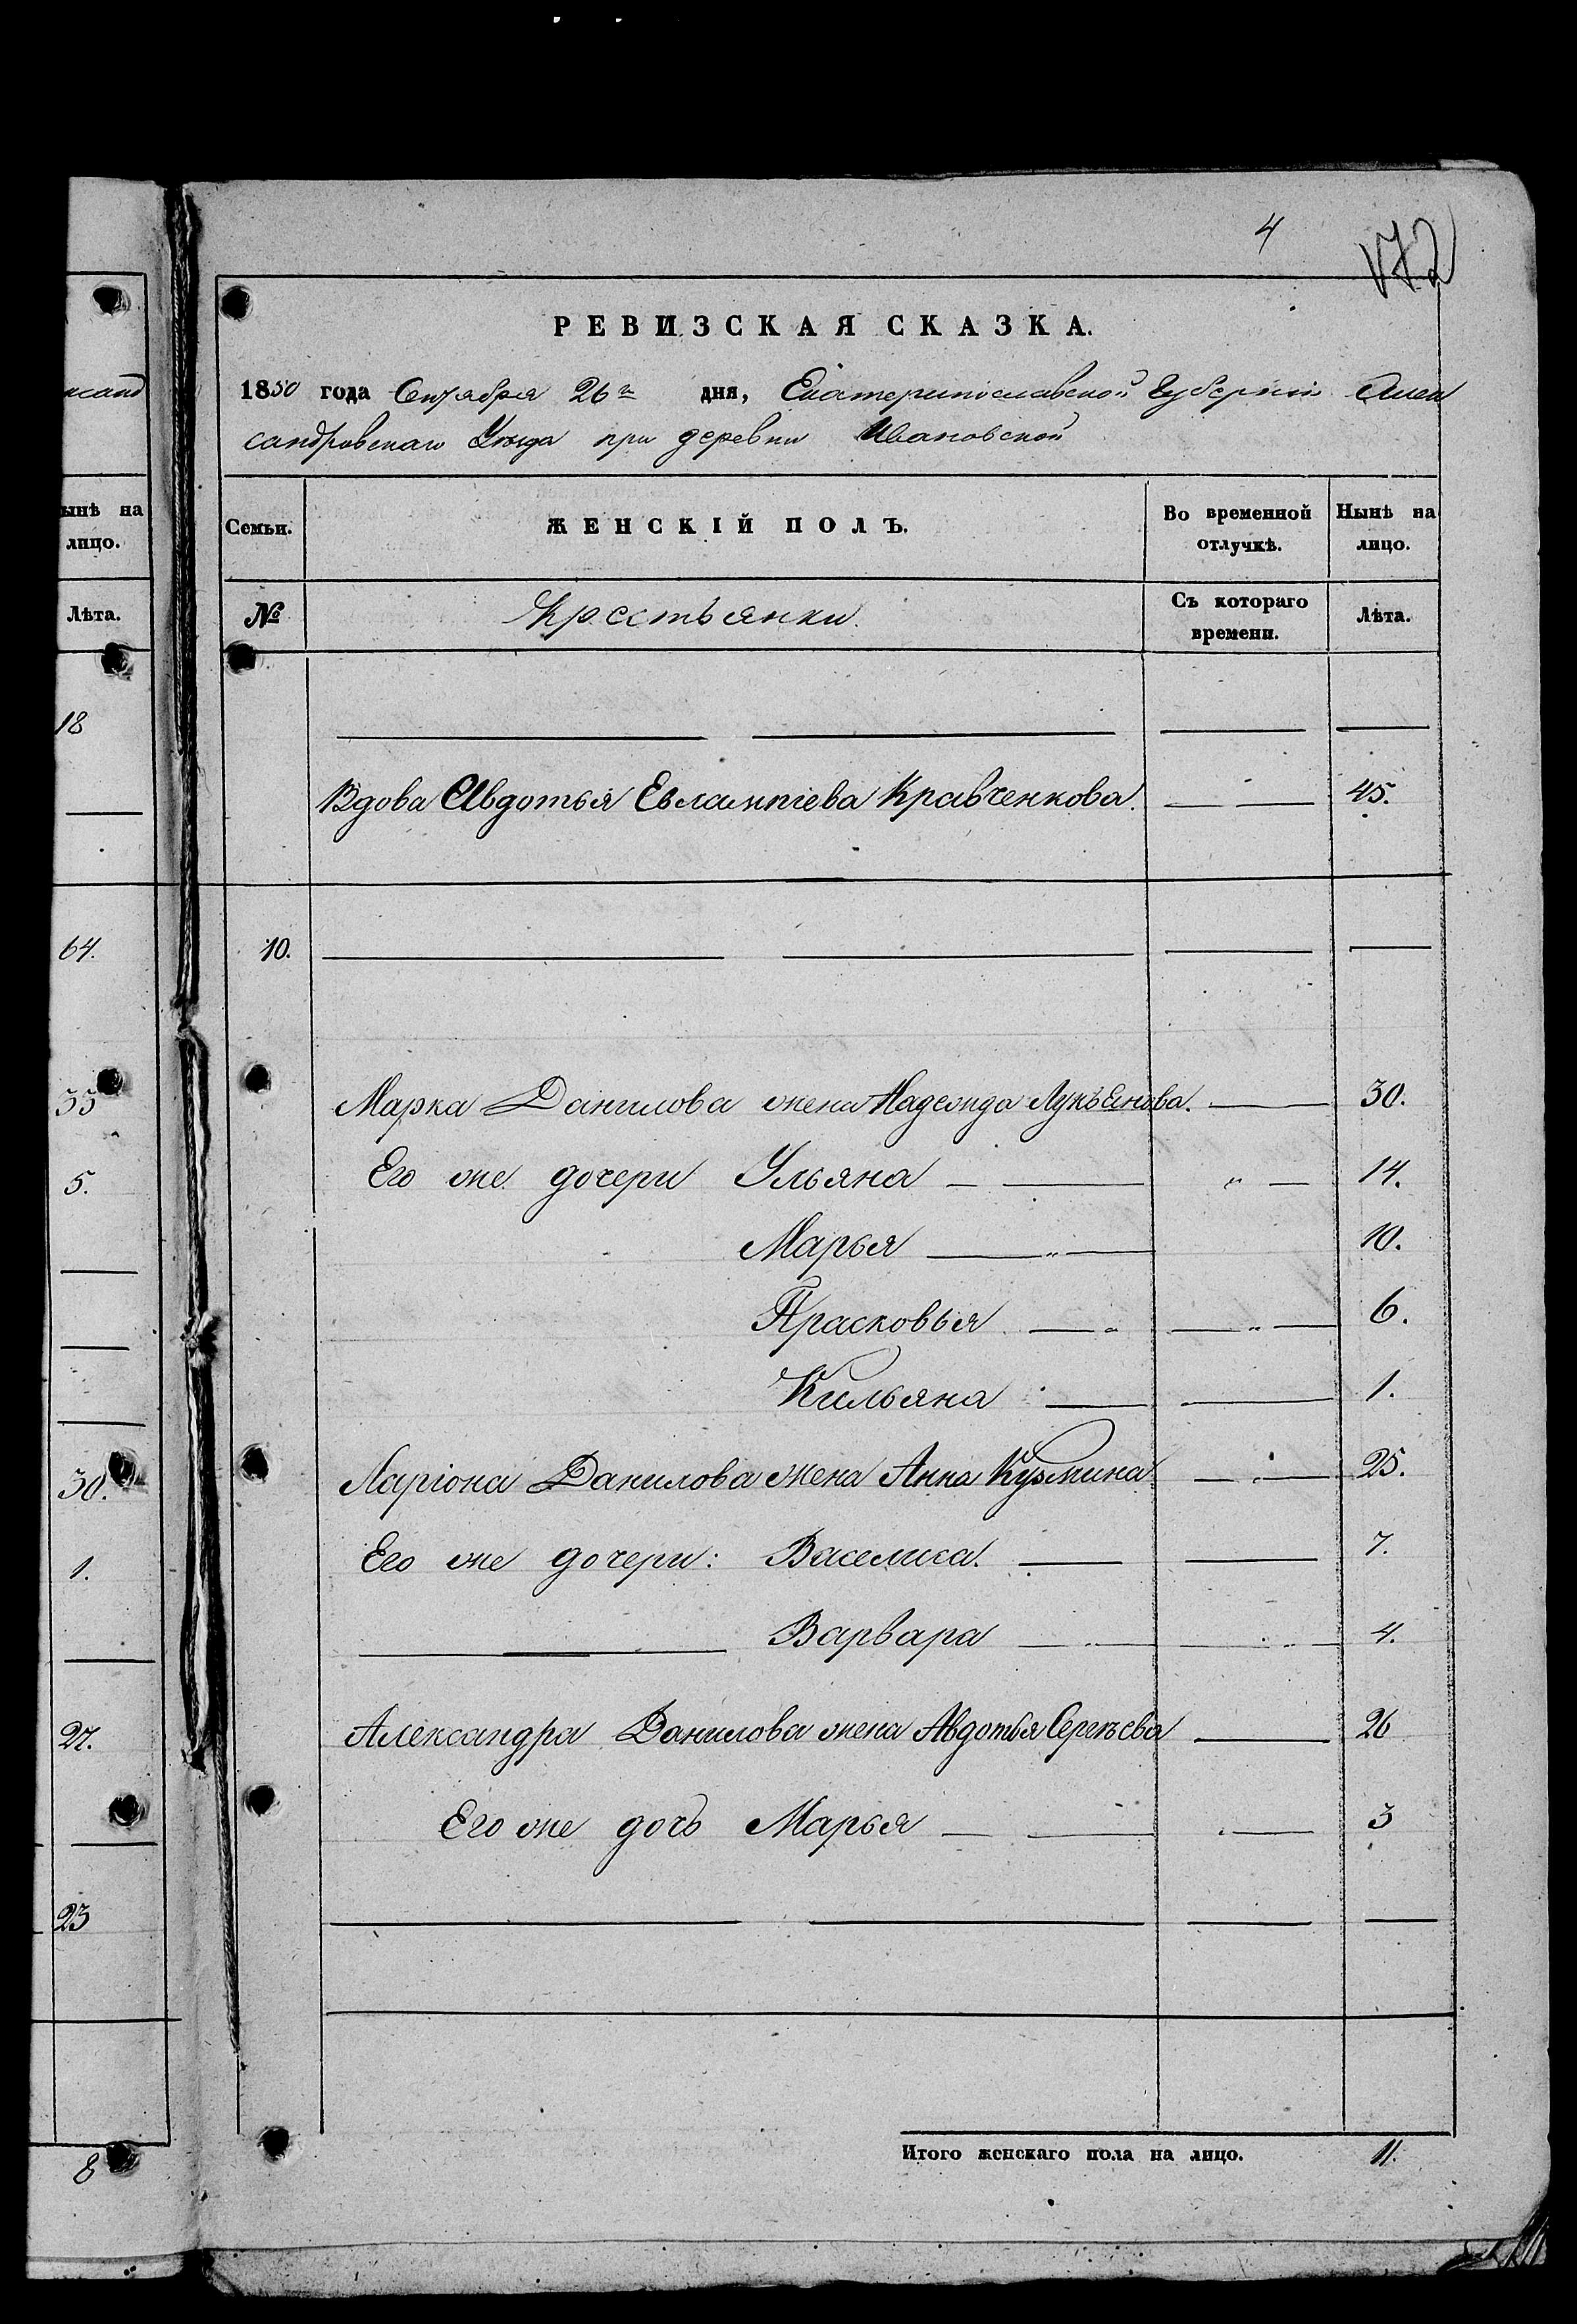 ксанд
ынѣ на
лицо.
Лѣта.
18
64.
33
5.
30.
1.
27.
23
8
4
172
РЕВИЗСКАЯ СКАЗКА.
1850 года Сентября 26го дня, Екатеринославской Губерніи Алек
сандровскаго Уѣзда при деревни Ивановской
Семьи. ЖЕНСКІЙ ПОЛЪ. Во временной отлучкѣ. Нынѣ на лицо.
№ Крестьянки. Съ котораго времени. Лѣта.
Вдова Авдотья Евлампіева Кравченкова. 45.
10.
Марка Данилова жена Надежда Лукьенова. 30.
Его же дочери Ульяна 14.
Марья 10.
Прасковья 6.
Кильяна 1.
Ларіона Данилова жена Анна Кузмина 25.
Его же дочери: Васелиса. 7.
Варвара 4.
Александра Данилова жена Авдотья Сергѣева 26
Его же дочь Марья 3
Итого женскаго пола на лицо. 11.